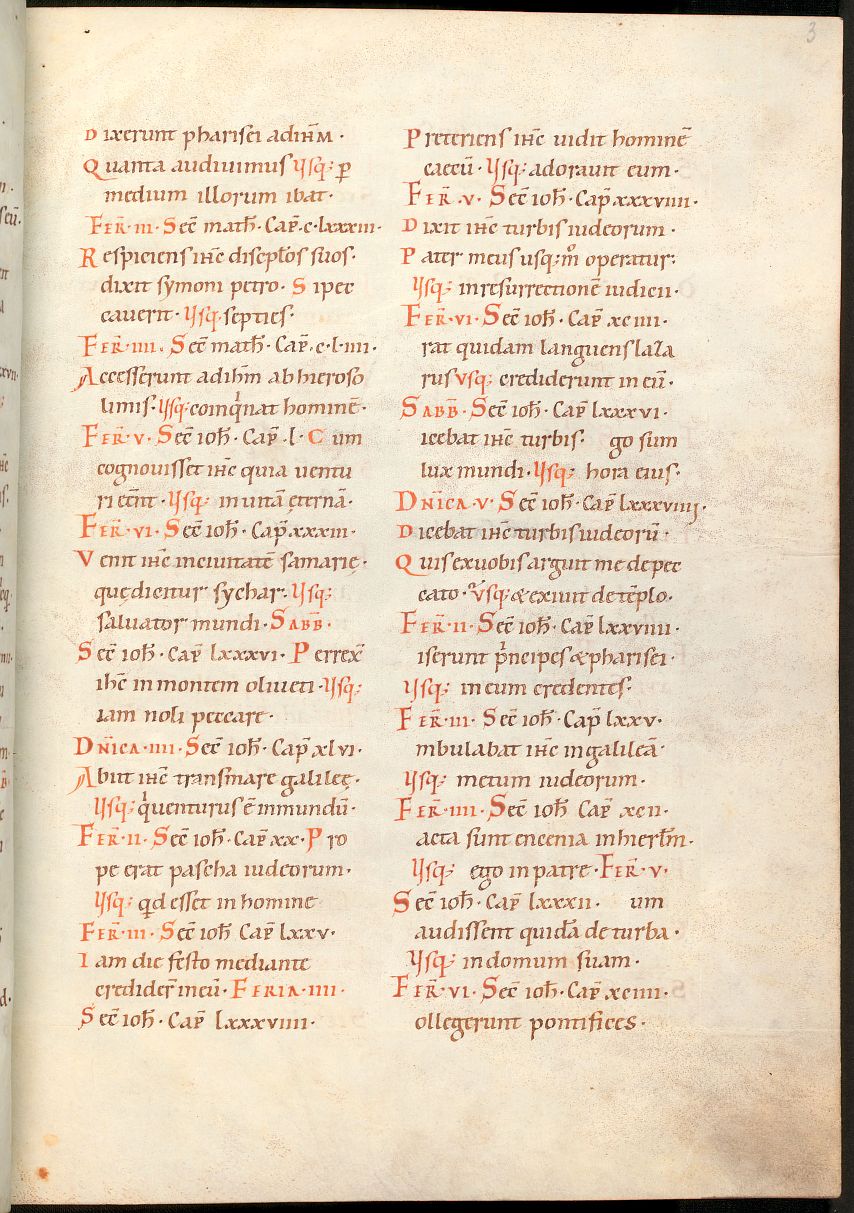 3
Dixerunt pharisei ad ihm̄ ·
Quanta audiuimus Usq; p̄
medium illorum ibat ·
FER̄ · III · Sec̄ math̄ · Cap̄ · c · lxxxiii ·
Respiciens ihc̄ discipl̄os suos ·
dixit symoni petro · Si pec
cauerit · Usq; septies ·
FER̄ · IIII · Sec̄ math̄ · Cap̄ · c · l · iiii ·
Accesserunt ad ihm̄ ab hieroso
limis · Usq; coinq̇nat hominē ·
FER̄ · V · Sec̄ ioh̄ · Cap̄ · l · Cum
cognouisset ihc̄ quia uentu
ri eēnt · Usq; in uitā ęternā ·
FER̄ · VI · Sec̄ ioh̄ · Cap̄ xxxiii ·
Venit ihc̄ in ciuitatē samarię ·
quę dicitur sychar · Usq;
saluator mundi · SABB̄ ·
Sec̄ ioh̄ · Cap̄ lxxxvi · Perrex̄
ihc̄ in montem oliueti · Usq;
iam noli peccare ·
DN̄ICA · IIII · Sec̄ ioh̄ · Cap̄ xlvi ·
Abiit ihc̄ trans mare galileę ·
Usq; q̇ uenturus ē in mundū ·
FER̄ · II · Sec̄ ioh̄ · Cap̄ xx · Pro
pe erat pascha iudeorum ·
Usq; qd̄ esset in homine
FER̄ · III · Sec̄ ioh̄ Cap̄ lxxv ·
Iam die festo mediante
credider̄ in eū · FERIA · IIII ·
Sec̄ ioh̄ · Cap̄ lxxxviiii ·
Preteriens ihc̄ uidit hominē
cecū · Usq; adorauit eum ·
FER̄ · V · Sec̄ ioh̄ · Cap̄ xxxviiii ·
Dixit ihc̄ turbis iudeorum ·
Pater meus usq; m̊ operatur ·
Usq; in resurrectionē iudicii ·
FER̄ · VI · Sec̄ ioh̄ · Cap̄ xciiii ·
rat quidam languens laza
rus Usq; crediderunt in eū ·
SABB̄ · Sec̄ ioh̄ · Cap̄ lxxxvi ·
icebat ihc̄ turbis · go sum
lux mundi · Usq; hora eius ·
DN̄ICA · V · Sec̄ ioh̄ · Cap̄ lxxxviiij ·
Dicebat ihc̄ turbis iudeorū ·
Quis ex uobis arguit me de pec
cato · Usq; & exiuit de tēplo ·
FER̄ · II · Sec̄ ioh̄ · Cap̄ lxxviiii ·
iserunt p̍ncipes & pharisei ·
Usq; in eum credentes ·
FER̄ · III · Sec̄ ioh̄ · Cap̄ lxxv ·
mbulabat ihc̄ in galileā ·
Usq; metum iudeorum ·
FER̄ · IIII · Sec̄ ioh̄ Cap̄ xcii ·
acta sunt encenia in hierl̄m ·
Usq; ego in patre · FER̄ · V ·
Sec̄ ioh̄ · Cap̄ lxxxii · um
audissent quidā de turba ·
Usq; in domum suam ·
FER̄ · VI · Sec̄ ioh̄ · Cap̄ xciiii ·
ollegerunt pontifices ·